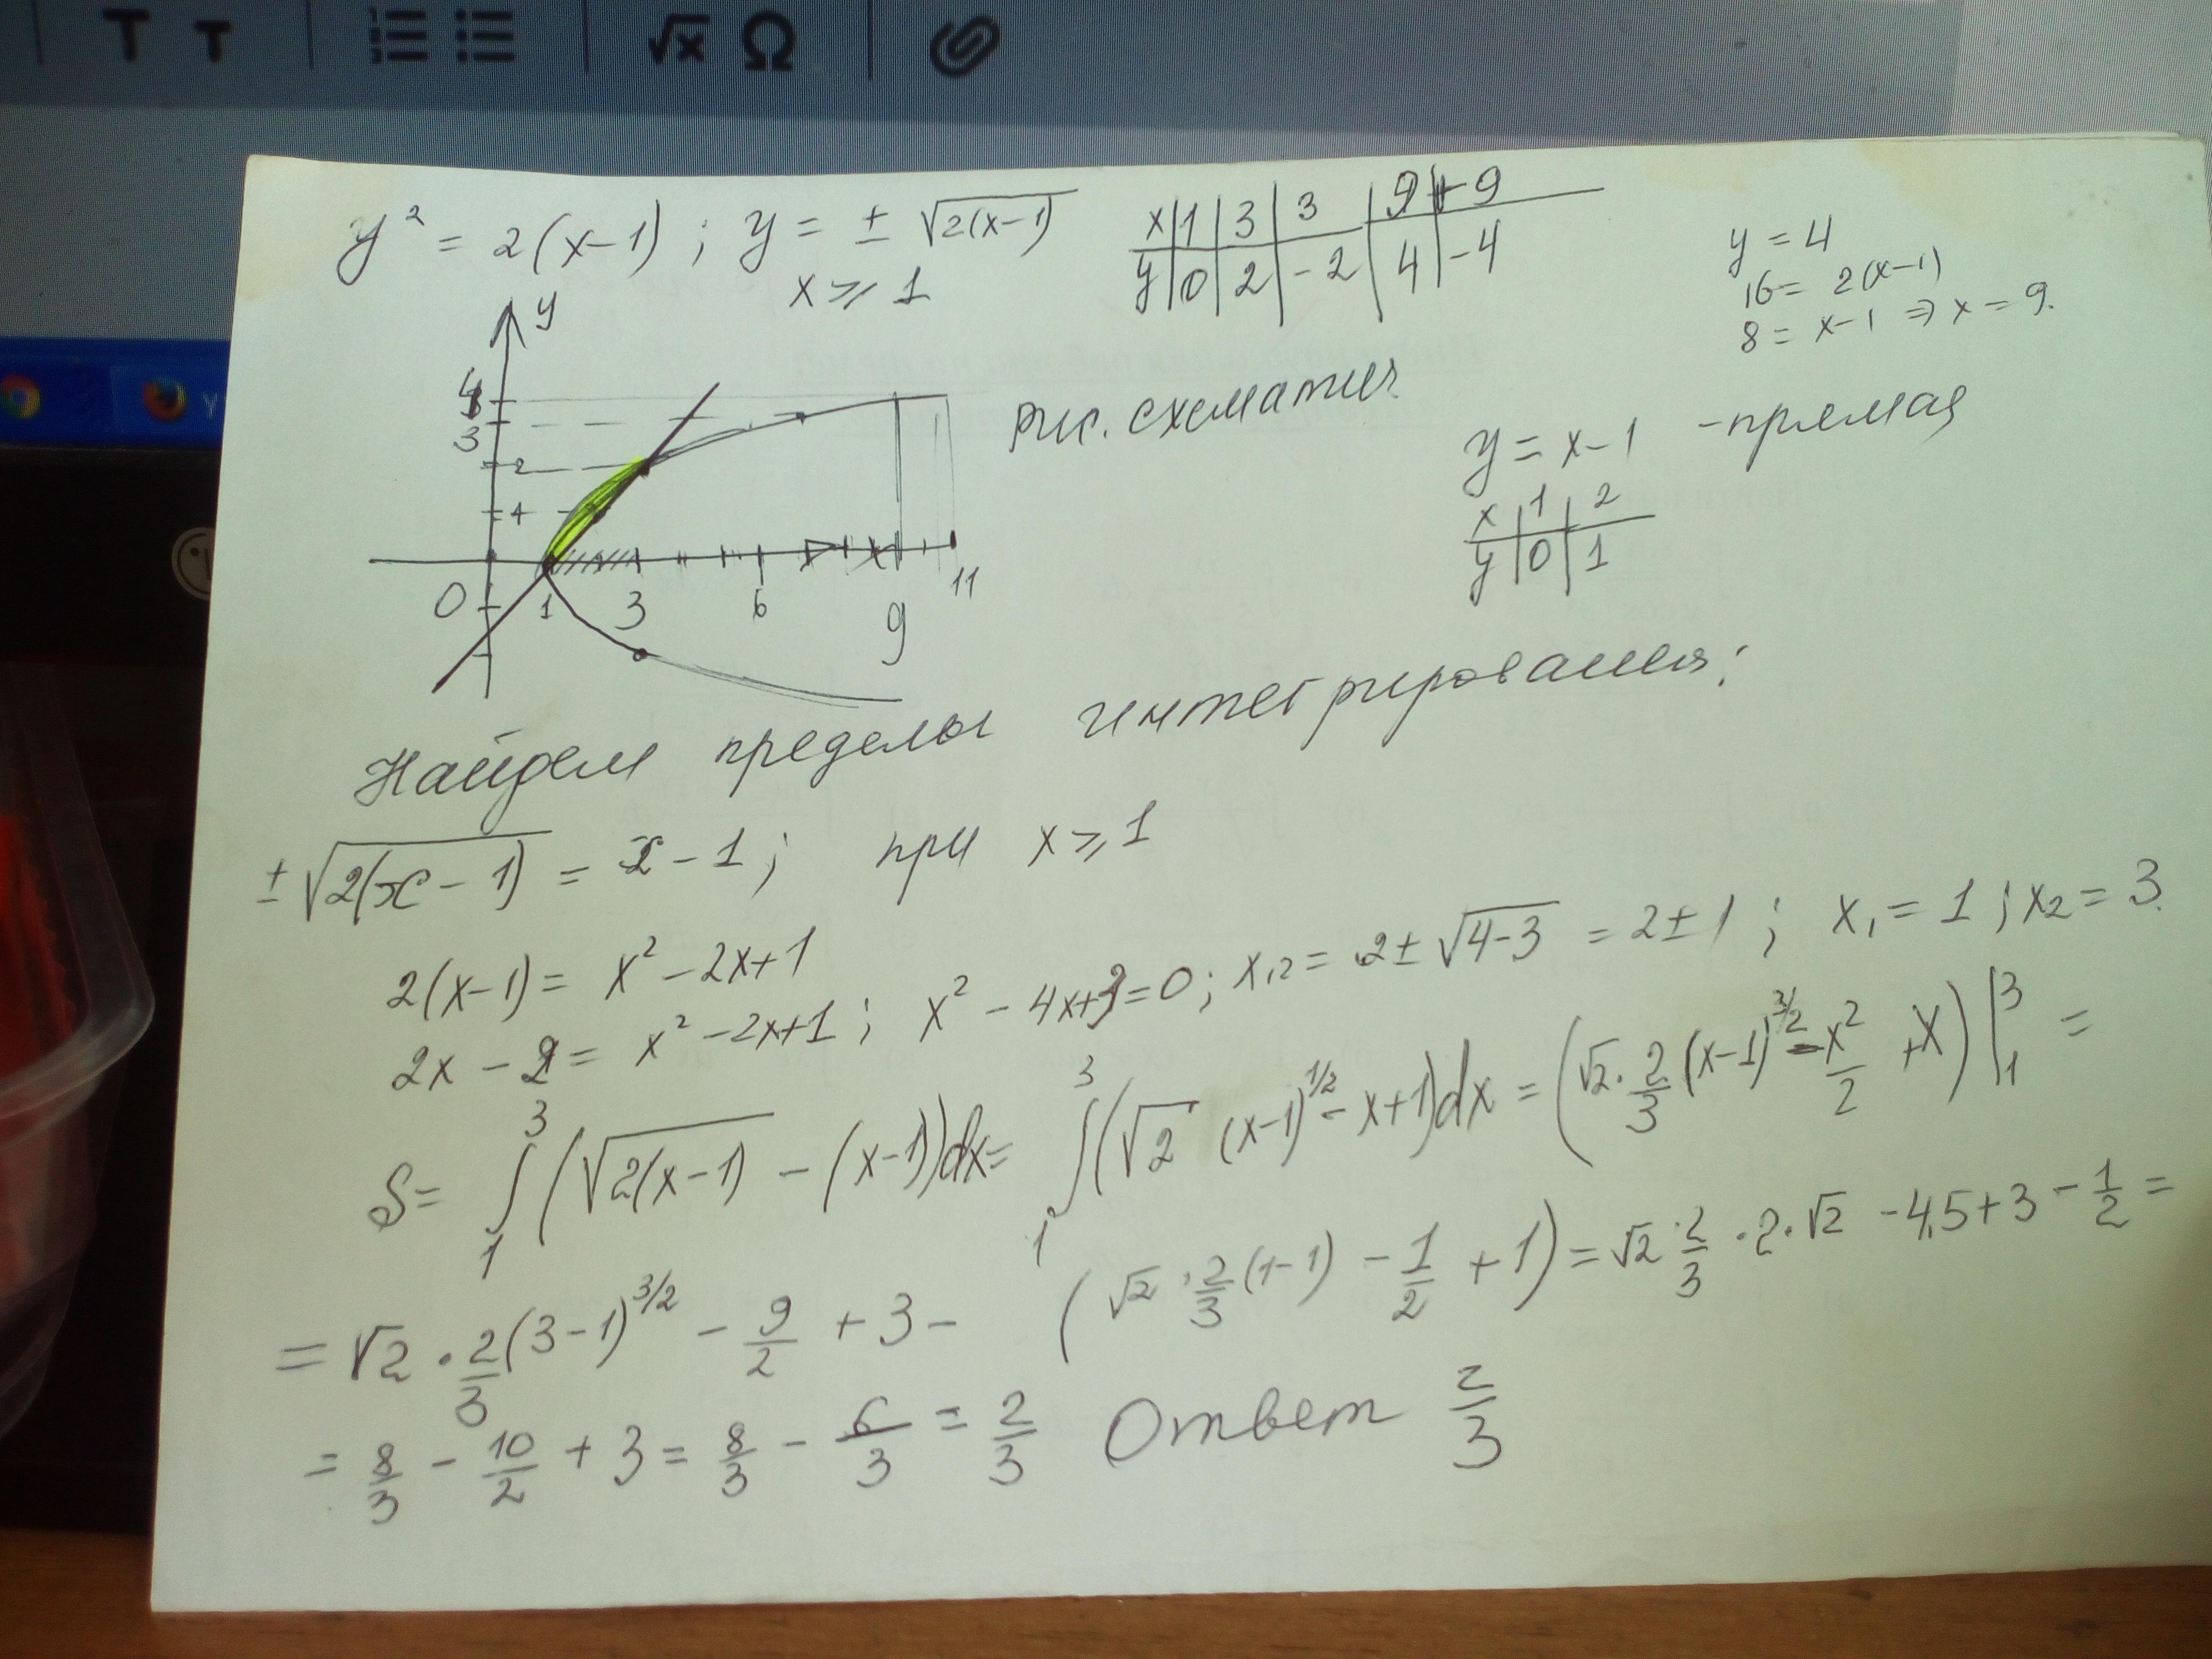 T т √x Ω
y² = 2(x-1) ; y = ± √2(x-1)
x ⩾ 1
x | 1 | 3 | 3 | 9 | 9
y | 0 | 2 | -2 | 4 | -4
y = 4
16 = 2(x-1)
8 = x-1 ⇒ x = 9.
y
4
3
2
1
0 1 3 6 9 11
рис. схематич
y = x-1 - прямая
x | 1 | 2
y | 0 | 1
Найдем пределы интегрирования:
± √2(x-1) = x-1 ; при x ⩾ 1
2(x-1) = x² - 2x+1
2x - 2 = x² - 2x+1 ; x² - 4x+3=0 ; x₁,₂ = 2± √4-3 = 2±1 ; x₁ = 1 ; x₂ = 3.
S = ∫₁³ (√2(x-1) - (x-1))dx = ∫₁³ (√2 (x-1)^1/2 - x+1)dx = (√2 · 2/3 (x-1)^3/2 - x²/2 + x) |₁³ =
= √2 · 2/3 (3-1)^3/2 - 9/2 + 3 - (√2 · 2/3 (1-1) - 1/2 + 1) = √2 · 2/3 · 2 · √2 - 4,5 + 3 - 1/2 =
= 8/3 - 10/2 + 3 = 8/3 - 6/3 = 2/3 Ответ 2/3